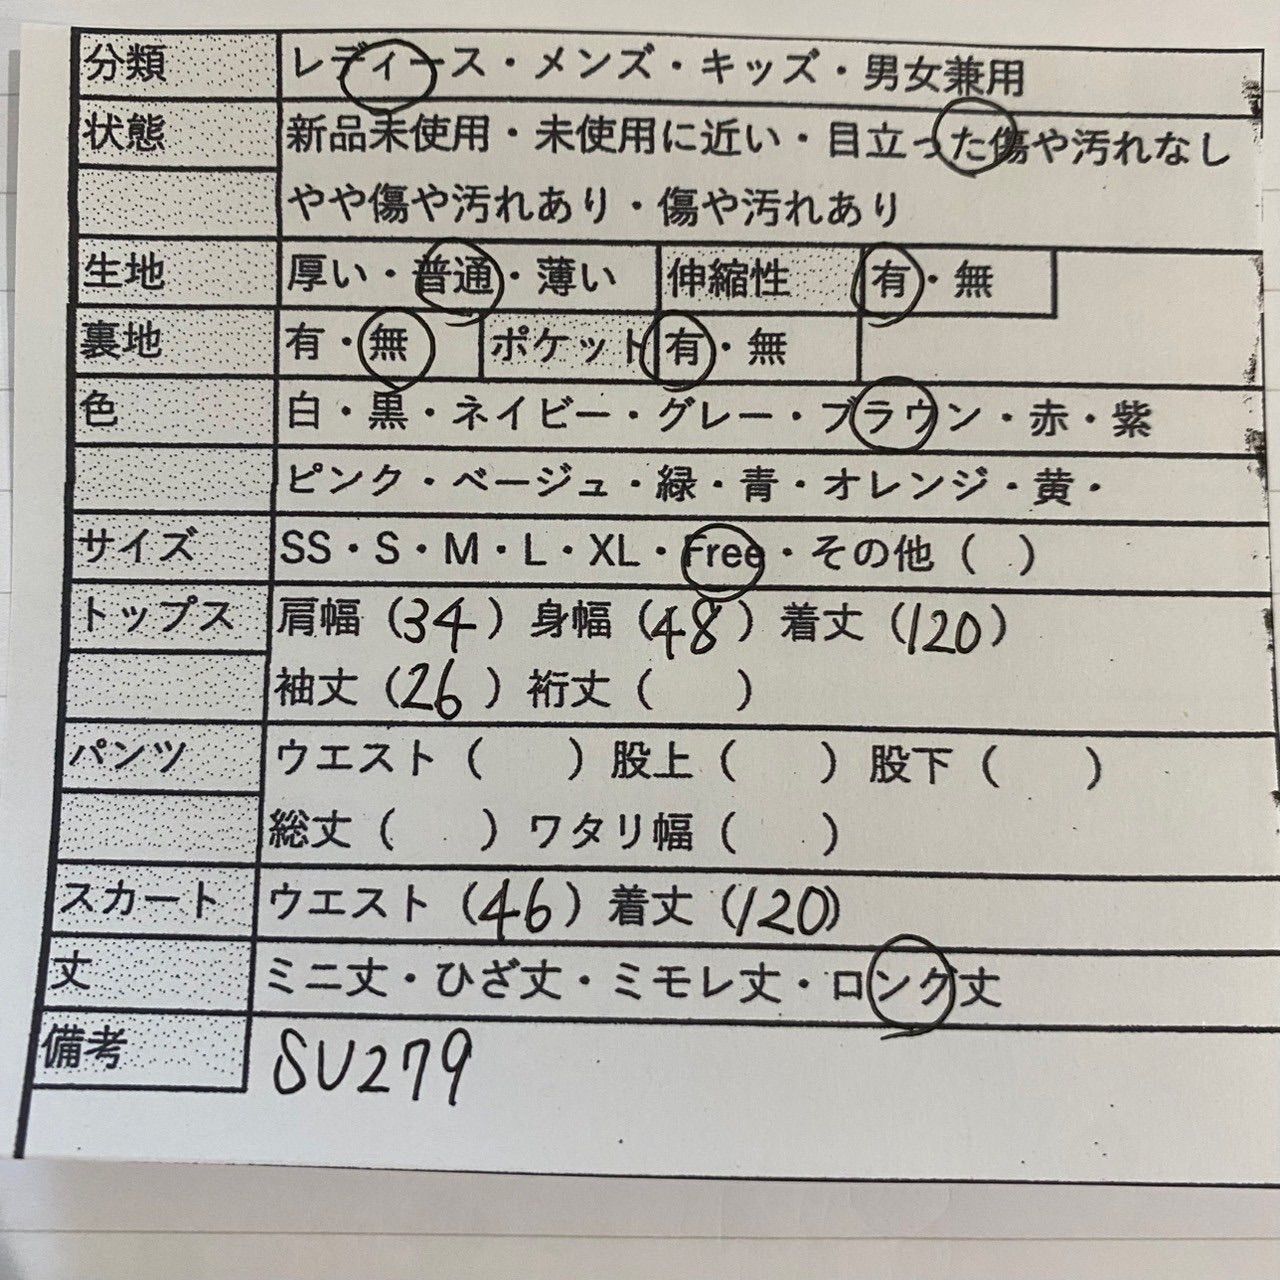 分類 レディース・メンズ・キッズ・男女兼用
状態 新品未使用・未使用に近い・目立った傷や汚れなし
やや傷や汚れあり・傷や汚れあり
生地 厚い・普通・薄い 伸縮性 有・無
裏地 有・無 ポケット 有・無
色 白・黒・ネイビー・グレー・ブラウン・赤・紫
ピンク・ベージュ・緑・青・オレンジ・黄・
サイズ SS・S・M・L・XL・Free・その他（ ）
トップス 肩幅（34）身幅（48）着丈（120）
袖丈（26）裄丈（ ）
パンツ ウエスト（ ）股上（ ）股下（ ）
総丈（ ）ワタリ幅（ ）
スカート ウエスト（46）着丈（120）
丈 ミニ丈・ひざ丈・ミモレ丈・ロング丈
備考 SU279